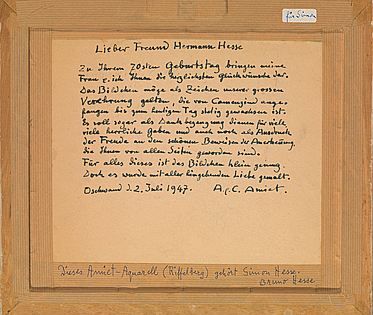 für Simon
Lieber Freund Hermann Hesse
Zu Ihrem 70sten Geburtstag bringen meine
Frau & ich Ihnen die herzlichsten Glückwünsche dar.
Das Bildchen möge als Zeichen unserer grossen
Verehrung gelten, die von Camenzind ange-
fangen bis zum heutigen Tag stetig gewachsen ist.
Es soll sogar als Dank entgegnung dienen für viele,
viele herrliche Gaben und auch noch als Ausdruck
der Freude an den schönen Beweisen der Anerkennung,
die Ihnen von allen Seiten geworden sind.
Für alles dieses ist das Bildchen klein genug.
Doch es wurde mit aller hingebenden Liebe gemalt.
Oschwand d. 2. Juli 1947. A. & C. Amiet.
Dieses Amiet-Aquarell (Riffelberg) gehört Simon Hesse.
Bruno Hesse